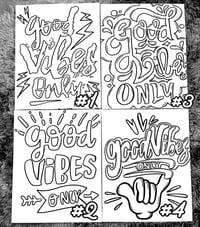 good
Vibes
Only
#1
Good
Vibes
ONLY
#3
Good
ViBES
ONLY
#2
good Vibes
ONLY
#4